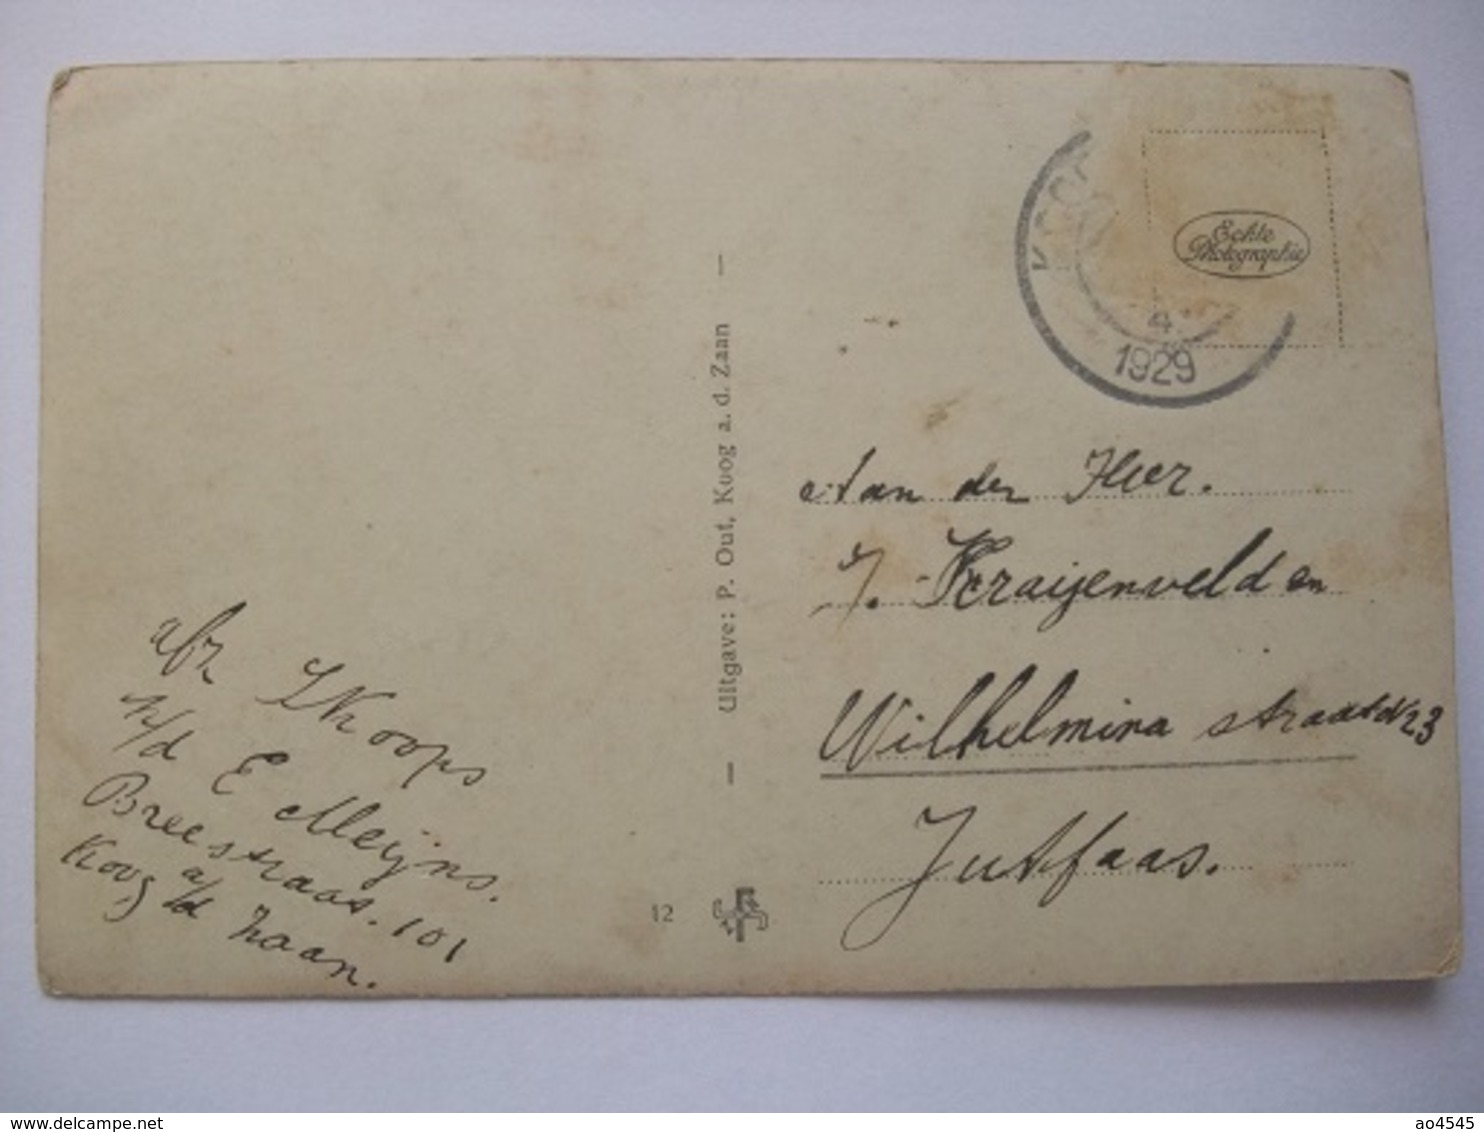 KOOG
4
1929
Echte
Photographie
Aan den Heer.
J. Kraijenveld en
Wilhelmina straat
Jutfaas.
Uitgave: P. Out, Koog a. d. Zaan
12
afz
Koops
p/d E Meijns.
Breestraat. 101
Koog a/d Zaan.
www.delcampe.net
ao4545